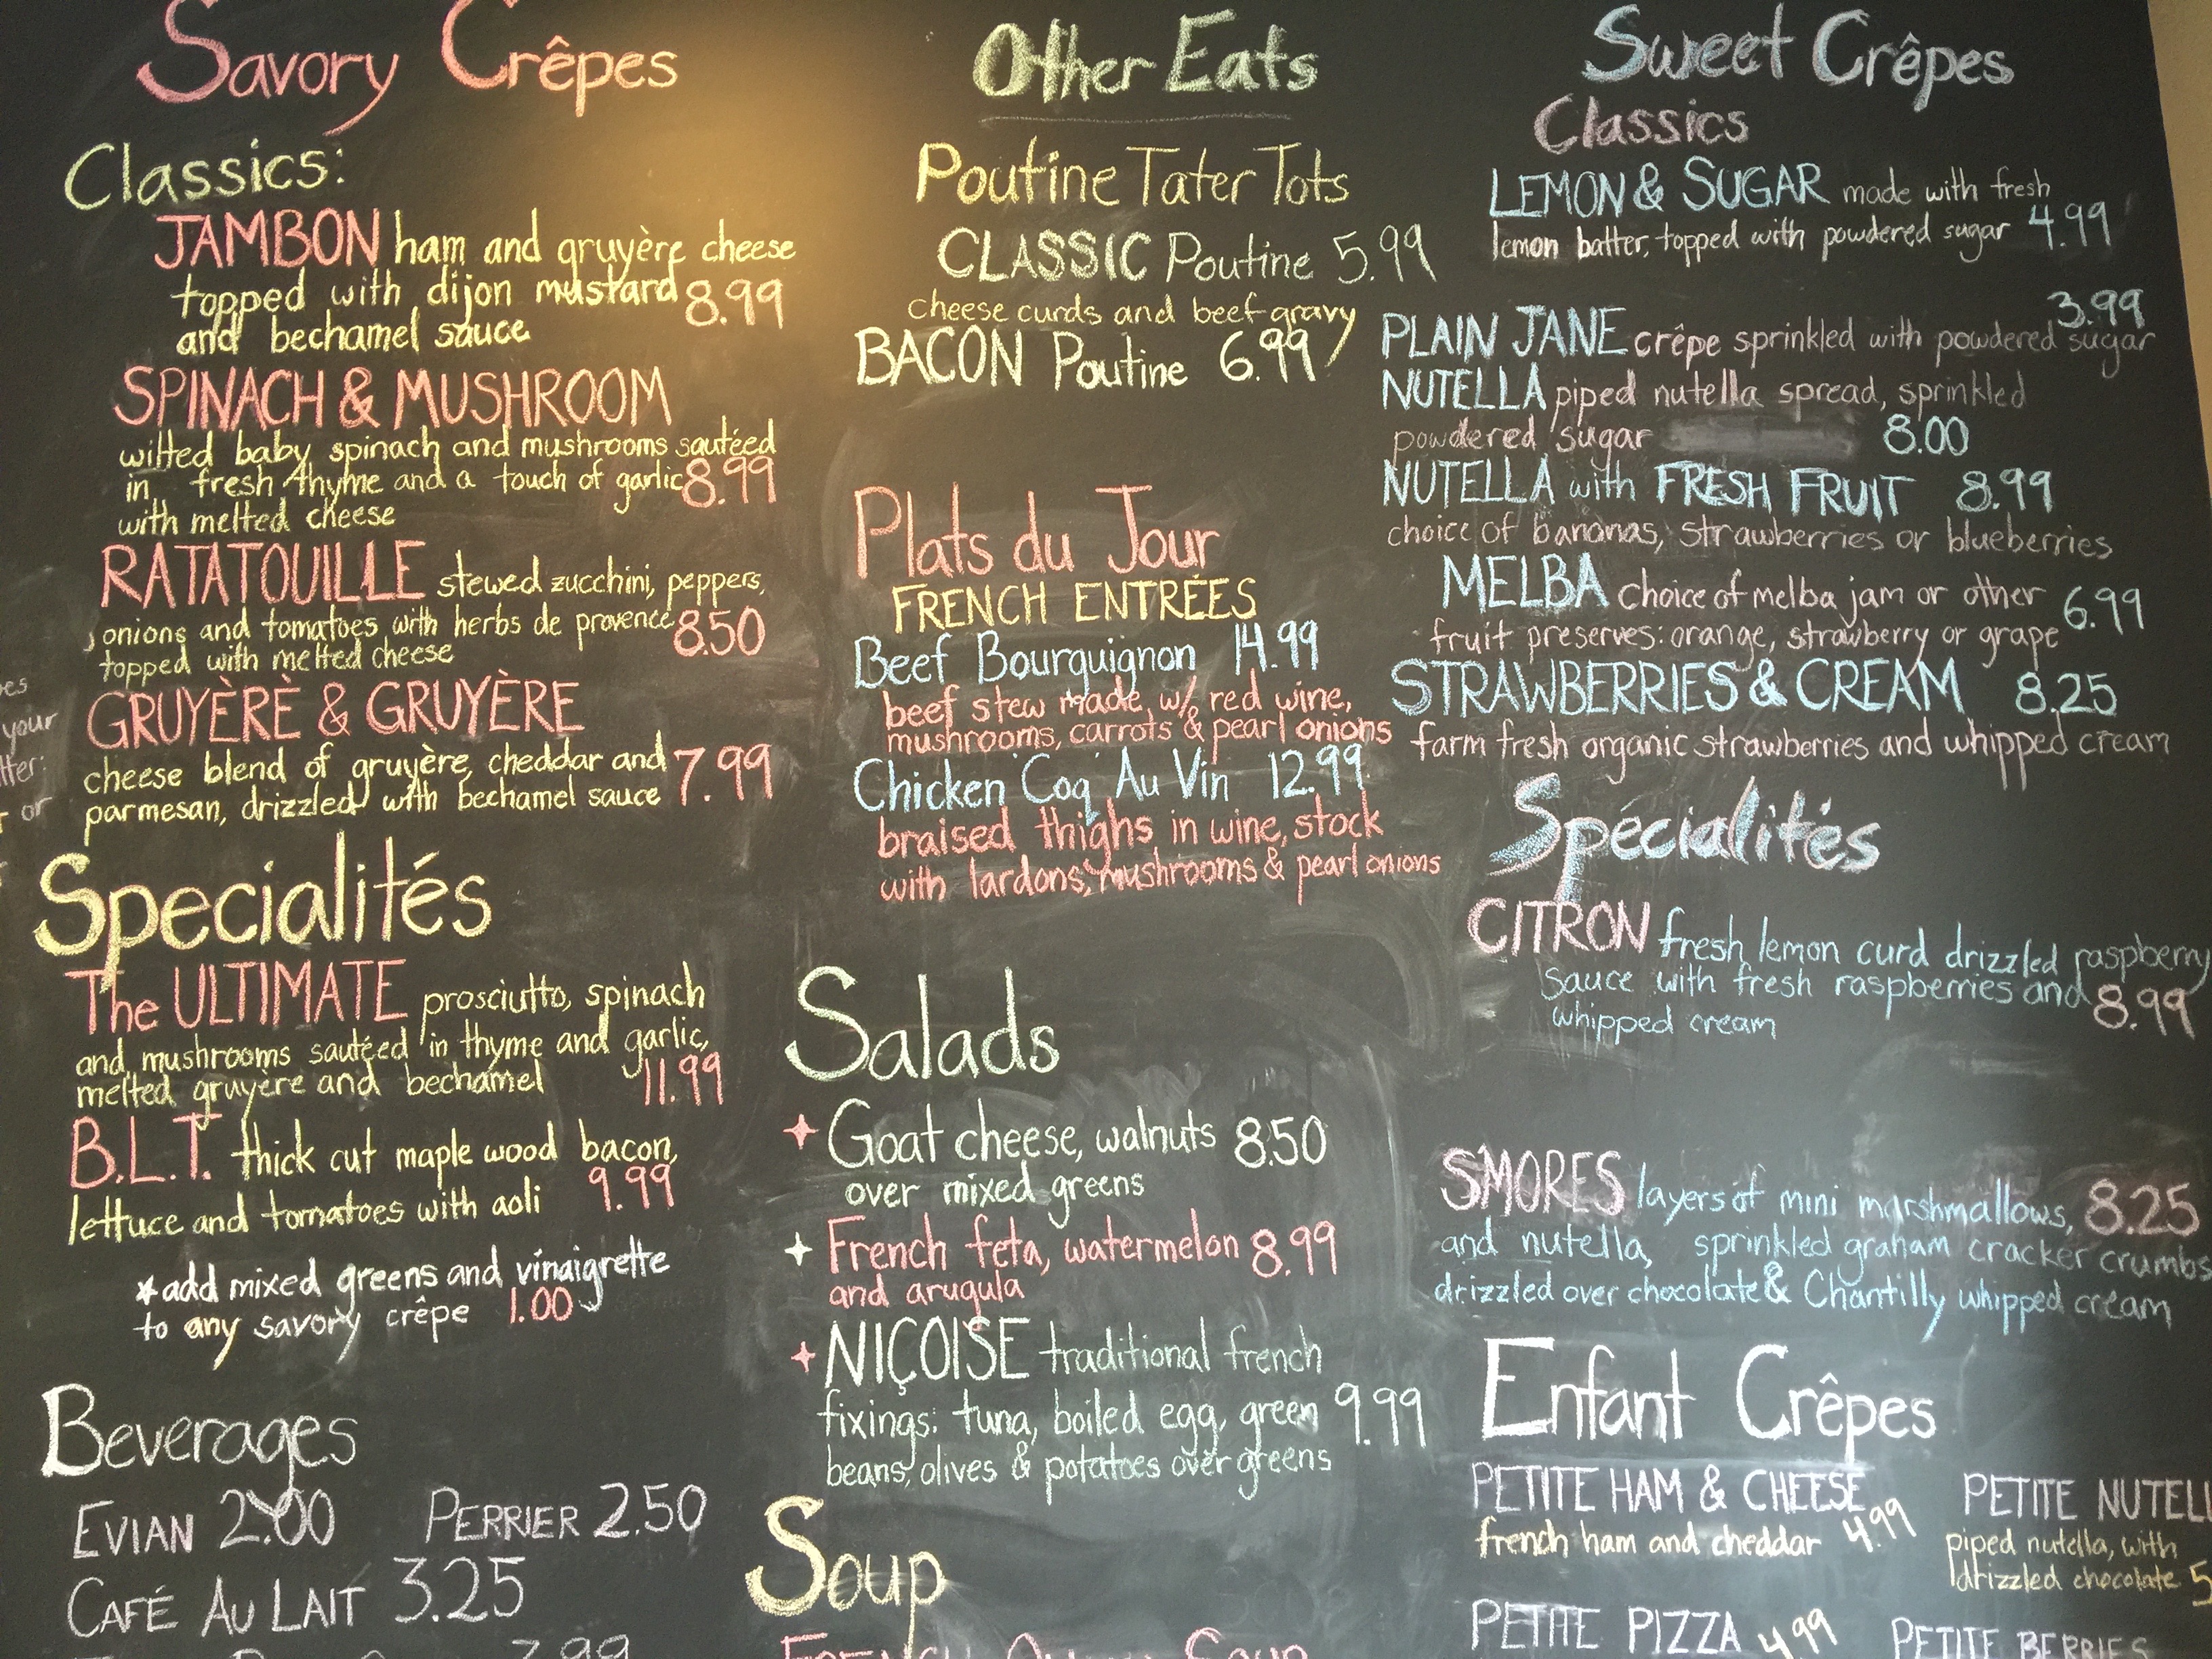 Savory Crêpes
Classics:
JAMBON ham and gruyère cheese
topped with dijon mustard 8.99
and bechamel sauce
SPINACH & MUSHROOM
wilted baby spinach and mushrooms sautéed
in fresh thyme and a touch of garlic 8.99
with melted cheese
RATATOUILLE stewed zucchini, peppers,
onions and tomatoes with herbs de provence 8.50
topped with melted cheese
GRUYÈRÈ & GRUYÈRE
cheese blend of gruyère, cheddar and 7.99
parmesan, drizzled with bechamel sauce
your
or
Specialités
The ULTIMATE prosciutto, spinach
and mushrooms sautéed in thyme and garlic,
melted gruyère and bechamel 11.99
B.L.T. thick cut maple wood bacon,
lettuce and tomatoes with aoli 9.99
*add mixed greens and vinaigrette
to any savory crêpe 1.00
Beverages
EVIAN 2.00 PERRIER 2.50
CAFÉ AU LAIT 3.25
Other Eats
Poutine Tater Tots
CLASSIC Poutine 5.99
cheese curds and beef gravy
BACON Poutine 6.99
Plats du Jour
FRENCH ENTRÉES
Beef Bourguignon 14.99
beef stew made w/ red wine,
mushrooms, carrots & pearl onions
Chicken "Coq" Au Vin 12.99
braised thighs in wine, stock
with lardons, mushrooms & pearl onions
Salads
Goat cheese, walnuts 8.50
over mixed greens
French feta, watermelon 8.99
and arugula
NIÇOISE traditional french
fixings: tuna, boiled egg, green 9.99
beans, olives & potatoes over greens
Soup
Sweet Crêpes
Classics
LEMON & SUGAR made with fresh
lemon batter, topped with powdered sugar 4.99
3.99
PLAIN JANE crêpe sprinkled with powdered sugar
NUTELLA piped nutella spread, sprinkled
powdered sugar 8.00
NUTELLA with FRESH FRUIT 8.99
choice of bananas, strawberries or blueberries
MELBA choice of melba jam or other 6.99
fruit preserves: orange, strawberry or grape
STRAWBERRIES & CREAM 8.25
farm fresh organic strawberries and whipped cream
Spécialités
CITRON fresh lemon curd drizzled raspberry
sauce with fresh raspberries and 8.99
whipped cream
S'MORES layers of mini marshmallows, 8.25
and nutella, sprinkled graham cracker crumbs
drizzled over chocolate & Chantilly whipped cream
Enfant Crêpes
PETITE HAM & CHEESE
french ham and cheddar 4.99
PETITE PIZZA 4.99
PETITE NUTELL
piped nutella, with
drizzled chocolate 5
PETITE BERRIES